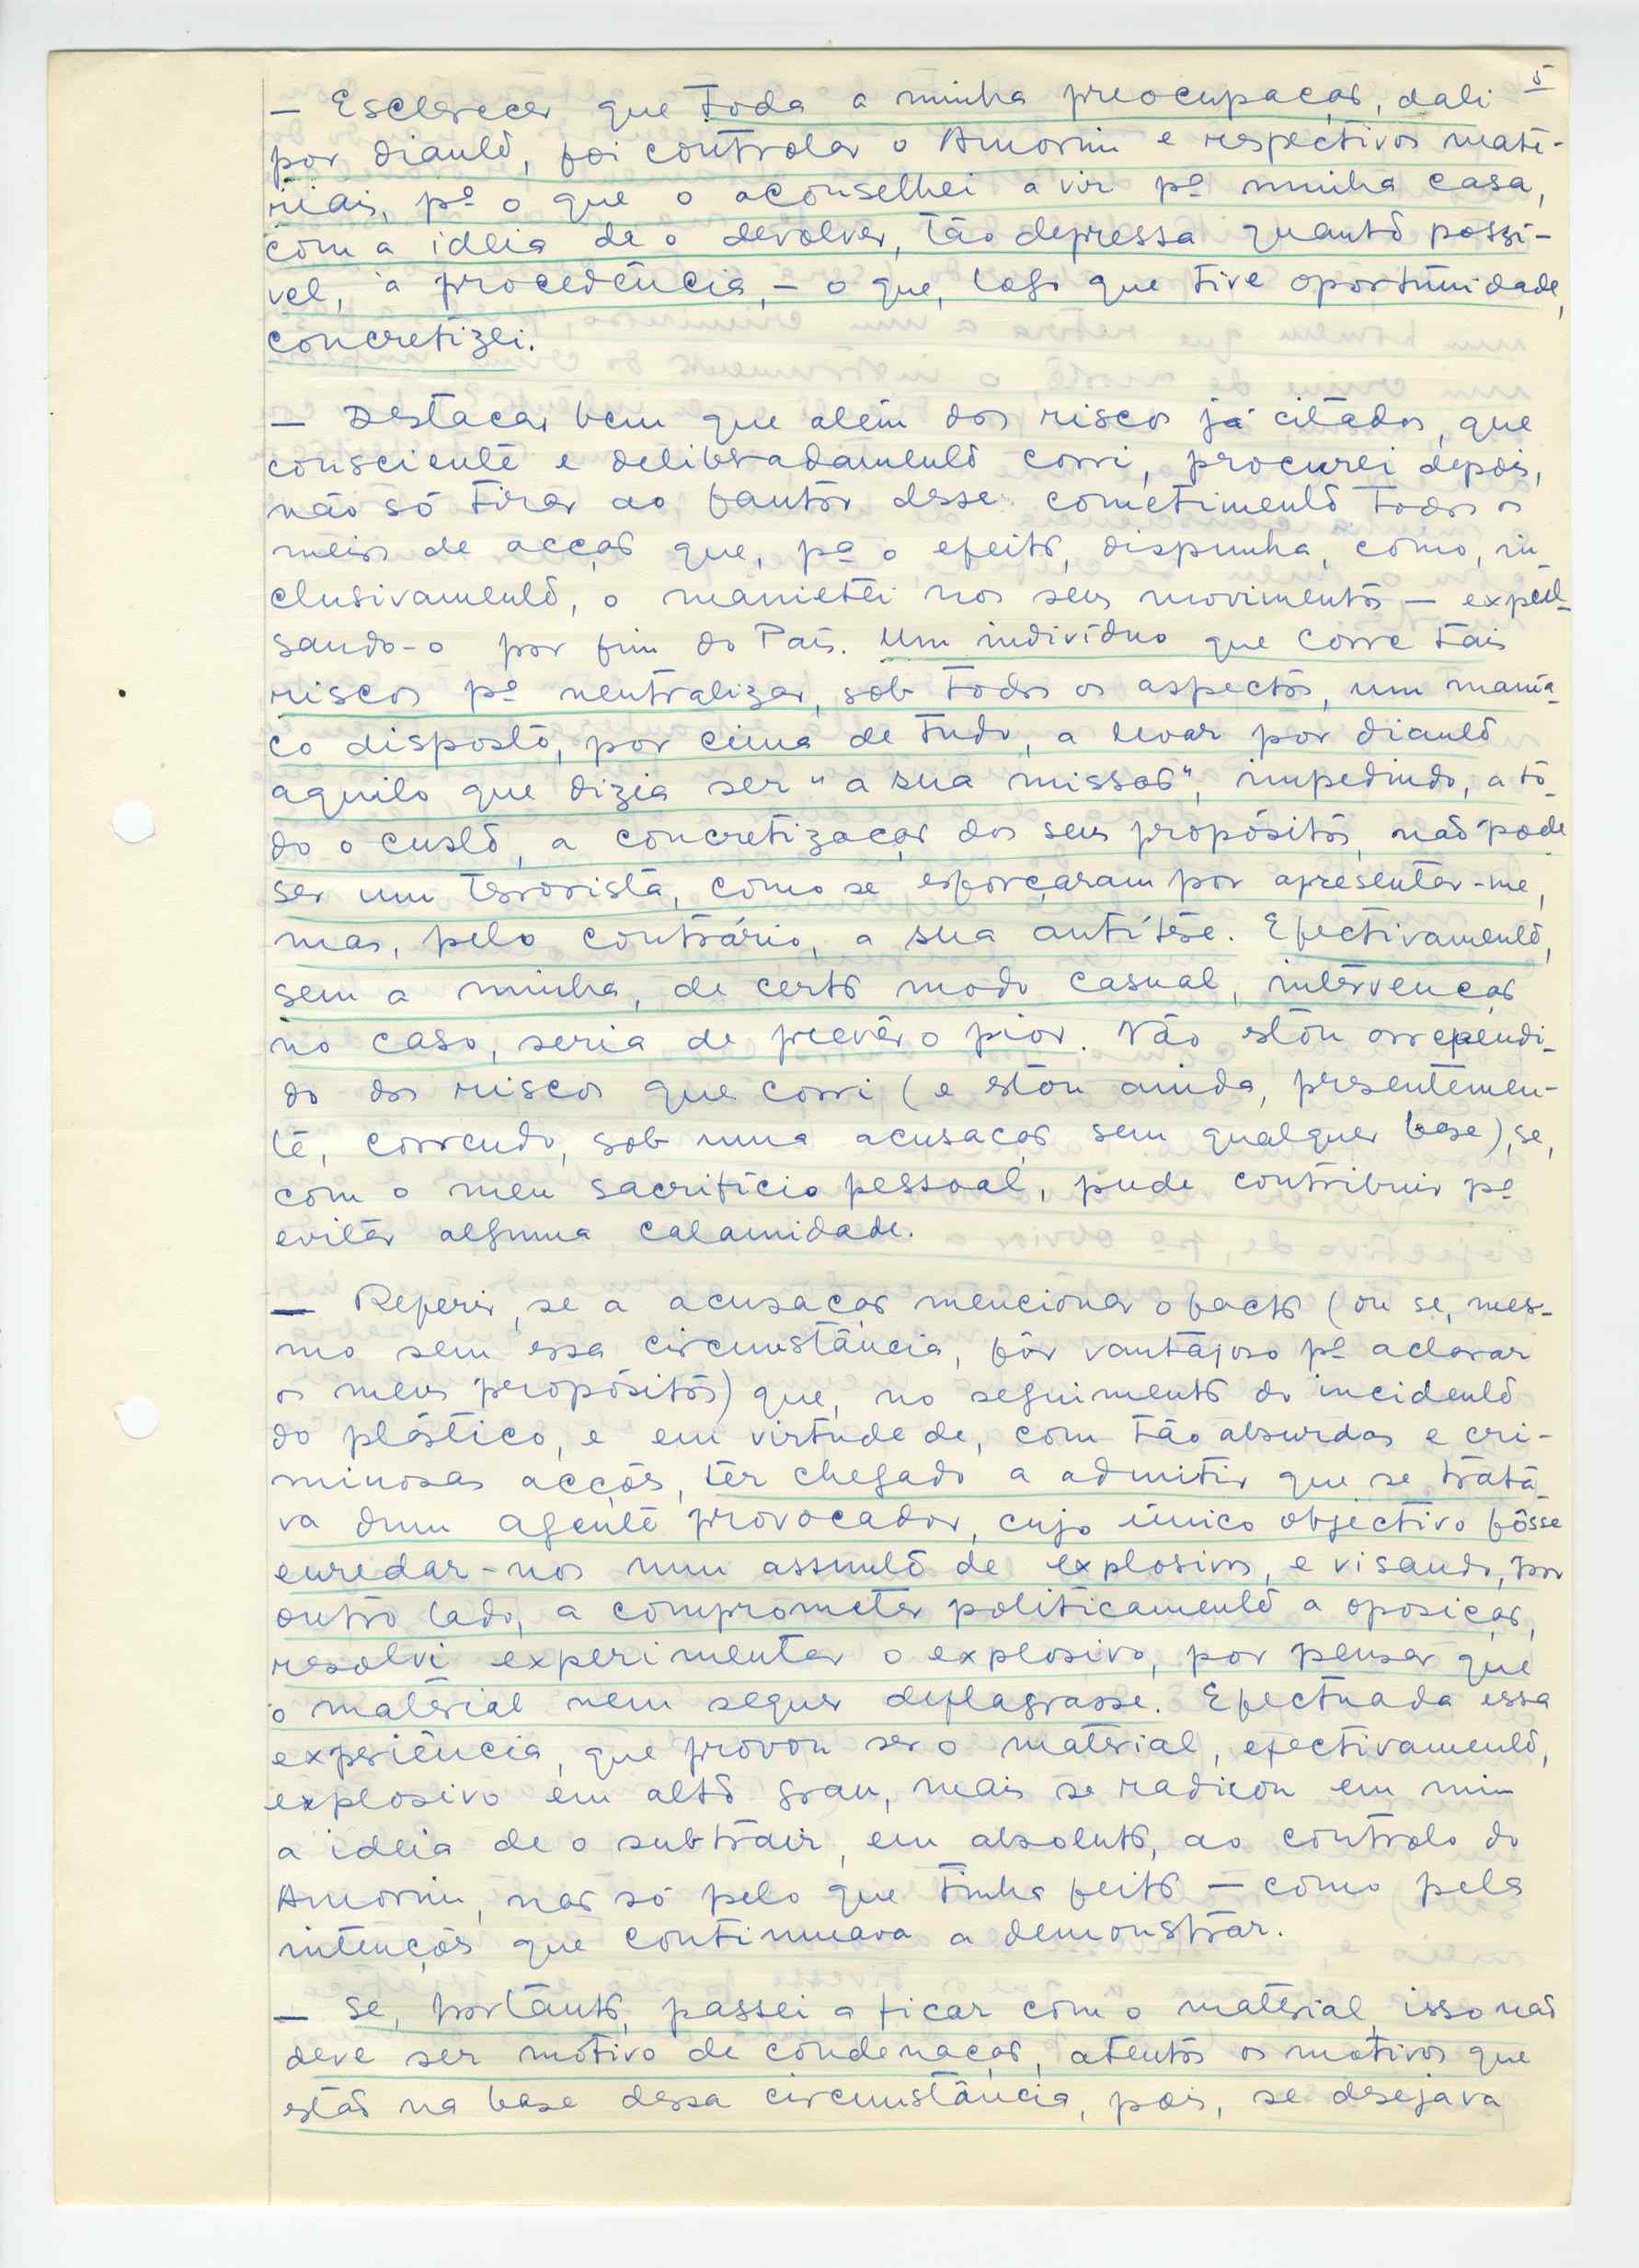 5
— Esclarecer que toda a minha preocupação, dali
por diante, foi controlar o Amorim e respectivos mate-
riais, pª o que o aconselhei a vir pª minha casa,
com a ideia de o devolver, tão depressa quanto possí-
vel, à procedência, — o que, logo que tive oportunidade,
concretizei.
— Destacar bem que além dos riscos já citados, que
consciente e deliberadamente corri, procurei depois,
não só tirar ao fautor desse cometimento todos os
meios de acção que, pª o efeito, dispunha, como, in-
clusivamente, o manietei nos seus movimentos — expul-
sando-o por fim do País. Um indivíduo que corre tais
riscos pª neutralizar, sob todos os aspectos, um manía-
co disposto, por cima de tudo, a levar por diante
aquilo que dizia ser "a sua missão", impedindo, a to-
do o custo, a concretização dos seus propósitos, não pode
ser um terrorista, como se esforçaram por apresentar-me,
mas, pelo contrário, a sua antítese. Efectivamente,
sem a minha, de certo modo casual, intervenção
no caso, seria de prevêr o pior. Não estou arrependi-
do dos riscos que corri (e estou ainda, presentemen-
te, correndo, sob uma acusação sem qualquer base), se,
com o meu sacrifício pessoal, pude contribuir pª
evitar alguma calamidade.
— Referir, se a acusação mencionar o facto (ou se, mes-
mo sem essa circunstância, fôr vantajoso pª aclarar
os meus propósitos) que, no seguimento do incidente
do plástico, e em virtude de, com tão absurdas e cri-
minosas acções, ter chegado a admitir que se trata-
va dum agente provocador, cujo único objectivo fôsse
enredar-nos num assunto de explosivos, e visando, por
outro lado, a comprometer politicamente a oposição,
resolvi experimentar o explosivo, por pensar que
o material nem sequer deflagrasse. Efectuada essa
experiência, que provou ser o material, efectivamente,
explosivo em alto grau, mais se radicou em mim
a ideia de o subtrair, em absoluto, ao controlo do
Amorim, não só pelo que tinha feito — como pelas
intenções que continuava a demonstrar.
— Se, portanto, passei a ficar com o material, isso não
deve ser motivo de condenação, atentos os motivos que
estão na base dessa circunstância, pois, se desejava